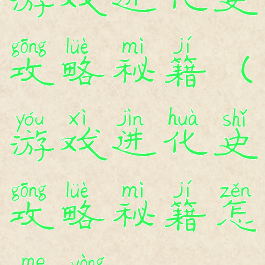 游戏进化史
gōng lüè mì jí
攻略秘籍（
yóu xì jìn huà shǐ
游戏进化史
gōng lüè mì jí zěn
攻略秘籍怎
me yòng